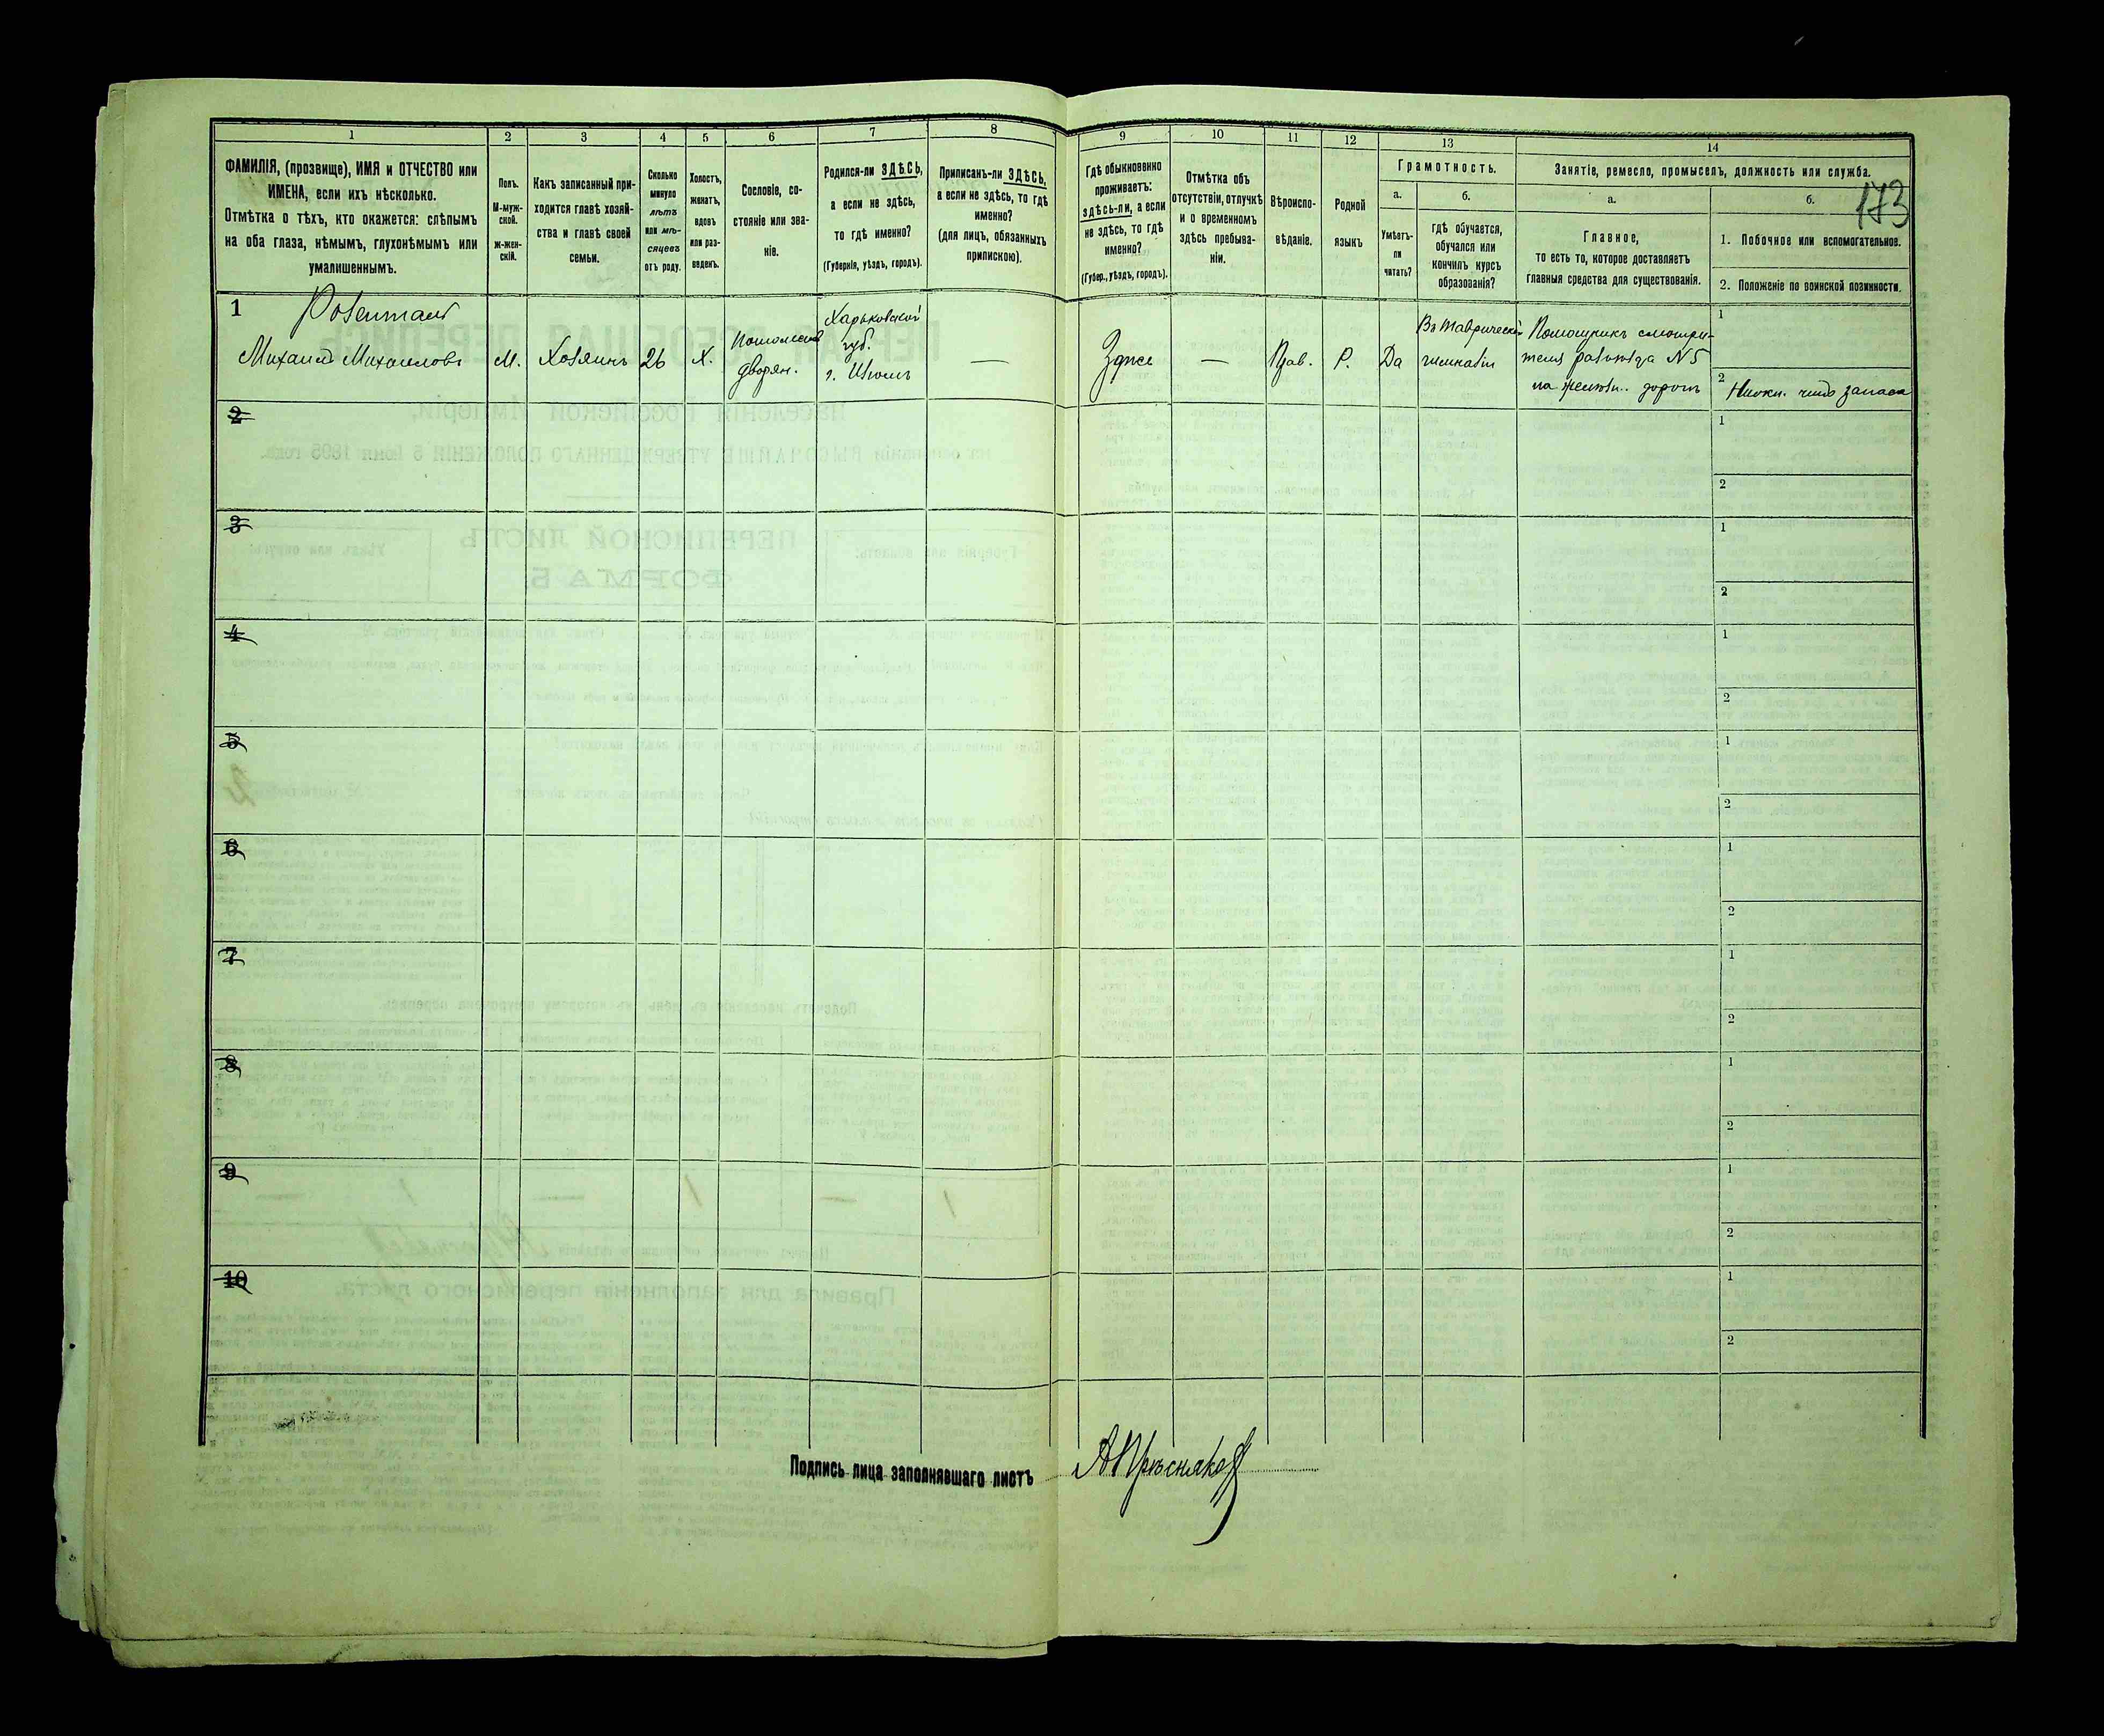 1
2
3
4
5
6
7
8
ФАМИЛІЯ, (прозвище), ИМЯ и ОТЧЕСТВО или
ИМЕНА, если ихъ нѣсколько.
Отмѣтка о тѣхъ, кто окажется: слѣпымъ
на оба глаза, нѣмымъ, глухонѣмымъ или
умалишеннымъ.
Полъ.
М-муж-
ской.
ж-жен-
скій.
Какъ записанный при-
ходится главѣ хозяй-
ства и главѣ своей
семьи.
Сколько
минуло
лѣтъ
или мѣ-
сяцевъ
отъ роду.
Холостъ,
женатъ,
вдовъ
или раз-
веденъ.
Сословіе, со-
стояніе или зва-
ніе.
Родился-ли ЗДѢСЬ,
а если не здѣсь,
то гдѣ именно?
(Губернія, уѣздъ, городъ).
Приписанъ-ли ЗДѢСЬ,
а если не здѣсь, то гдѣ
именно?
(для лицъ, обязанныхъ
припискою).
9
10
11
12
13
14
Гдѣ обыкновенно
проживаетъ:
здѣсь-ли, а если
не здѣсь, то гдѣ
именно?
(Губер., уѣздъ, городъ).
Отмѣтка объ
отсутствіи, отлучкѣ
и о временномъ
здѣсь пребыва-
ніи.
Вѣроиспо-
вѣданіе.
Родной
языкъ
Грамотность.
а.
Умѣетъ-
ли
читать?
б.
гдѣ обучается,
обучался или
кончилъ курсъ
образованія?
Занятіе, ремесло, промыселъ, должность или служба.
173
а.
Главное,
то есть то, которое доставляетъ
главныя средства для существованія.
б.
1. Побочное или вспомогательное.
2. Положеніе по воинской повинности.
1
Михаилъ Михаиловъ
М.
Хозяинъ
26
Х.
дворян.
Харьковской
губ.
г. Изюмъ
—
Здѣсь
—
Прав.
Р.
Да
Въ Таврической
гимназіи
Помощникъ смотри-
теля разъѣзда N 5
на желѣзн. дорогѣ
1
2 Нижн. чинъ запаса
2
1
2
3
1
2
4
1
2
5
1
2
6
1
2
7
1
2
8
1
2
9
1
2
10
1
2
Подпись лица заполнявшаго листъ